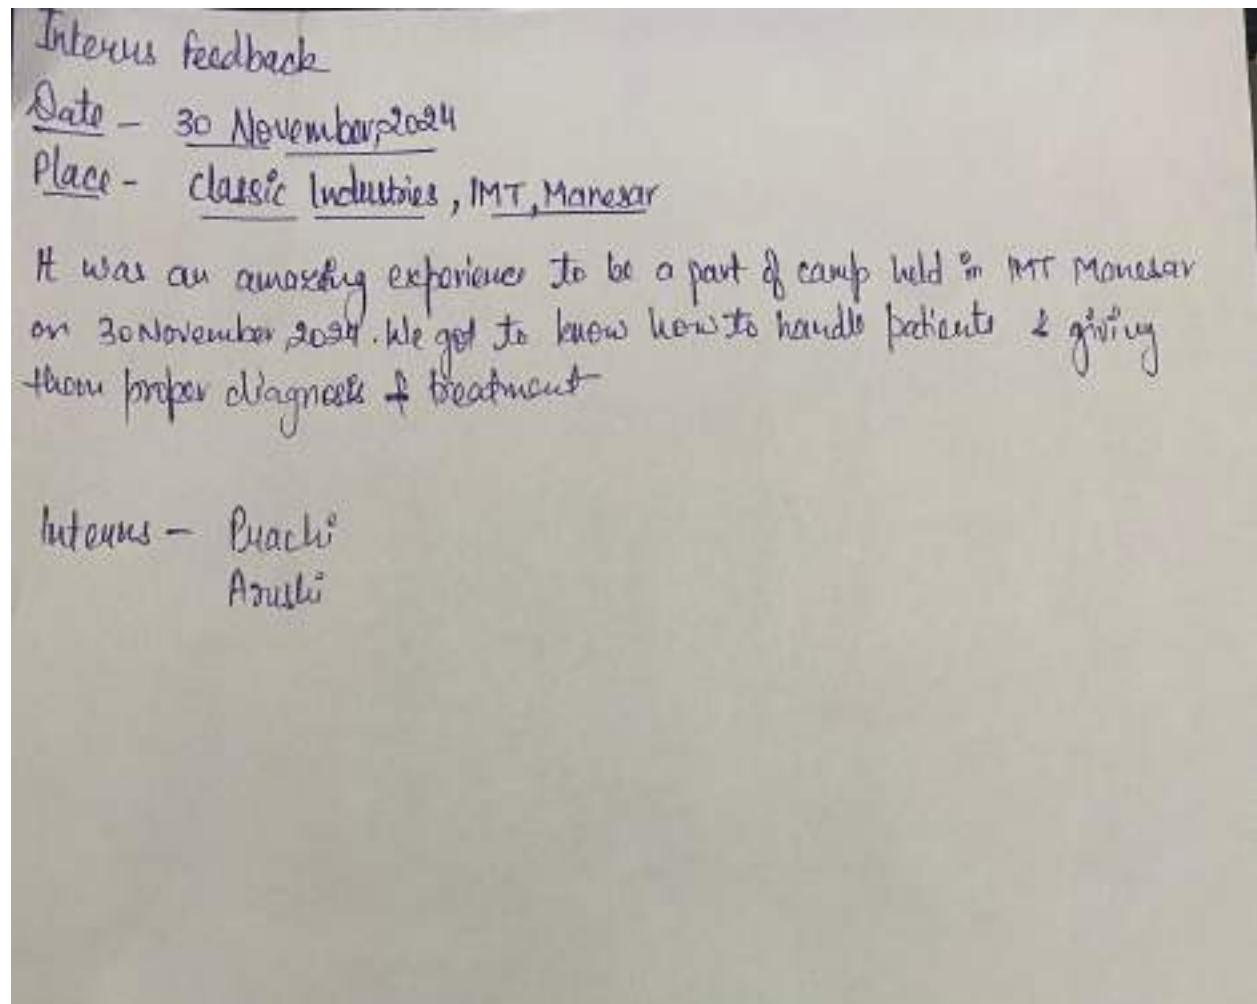 Interns feedback
Date - 30 November, 2024
Place - Classic Industries, IMT, Manesar
It was an amazing experience to be a part of camp held in IMT Manesar
on 30 November, 2024. We got to know how to handle patients & giving
them proper diagnosis & treatment
Interns - Prachi
Arushi